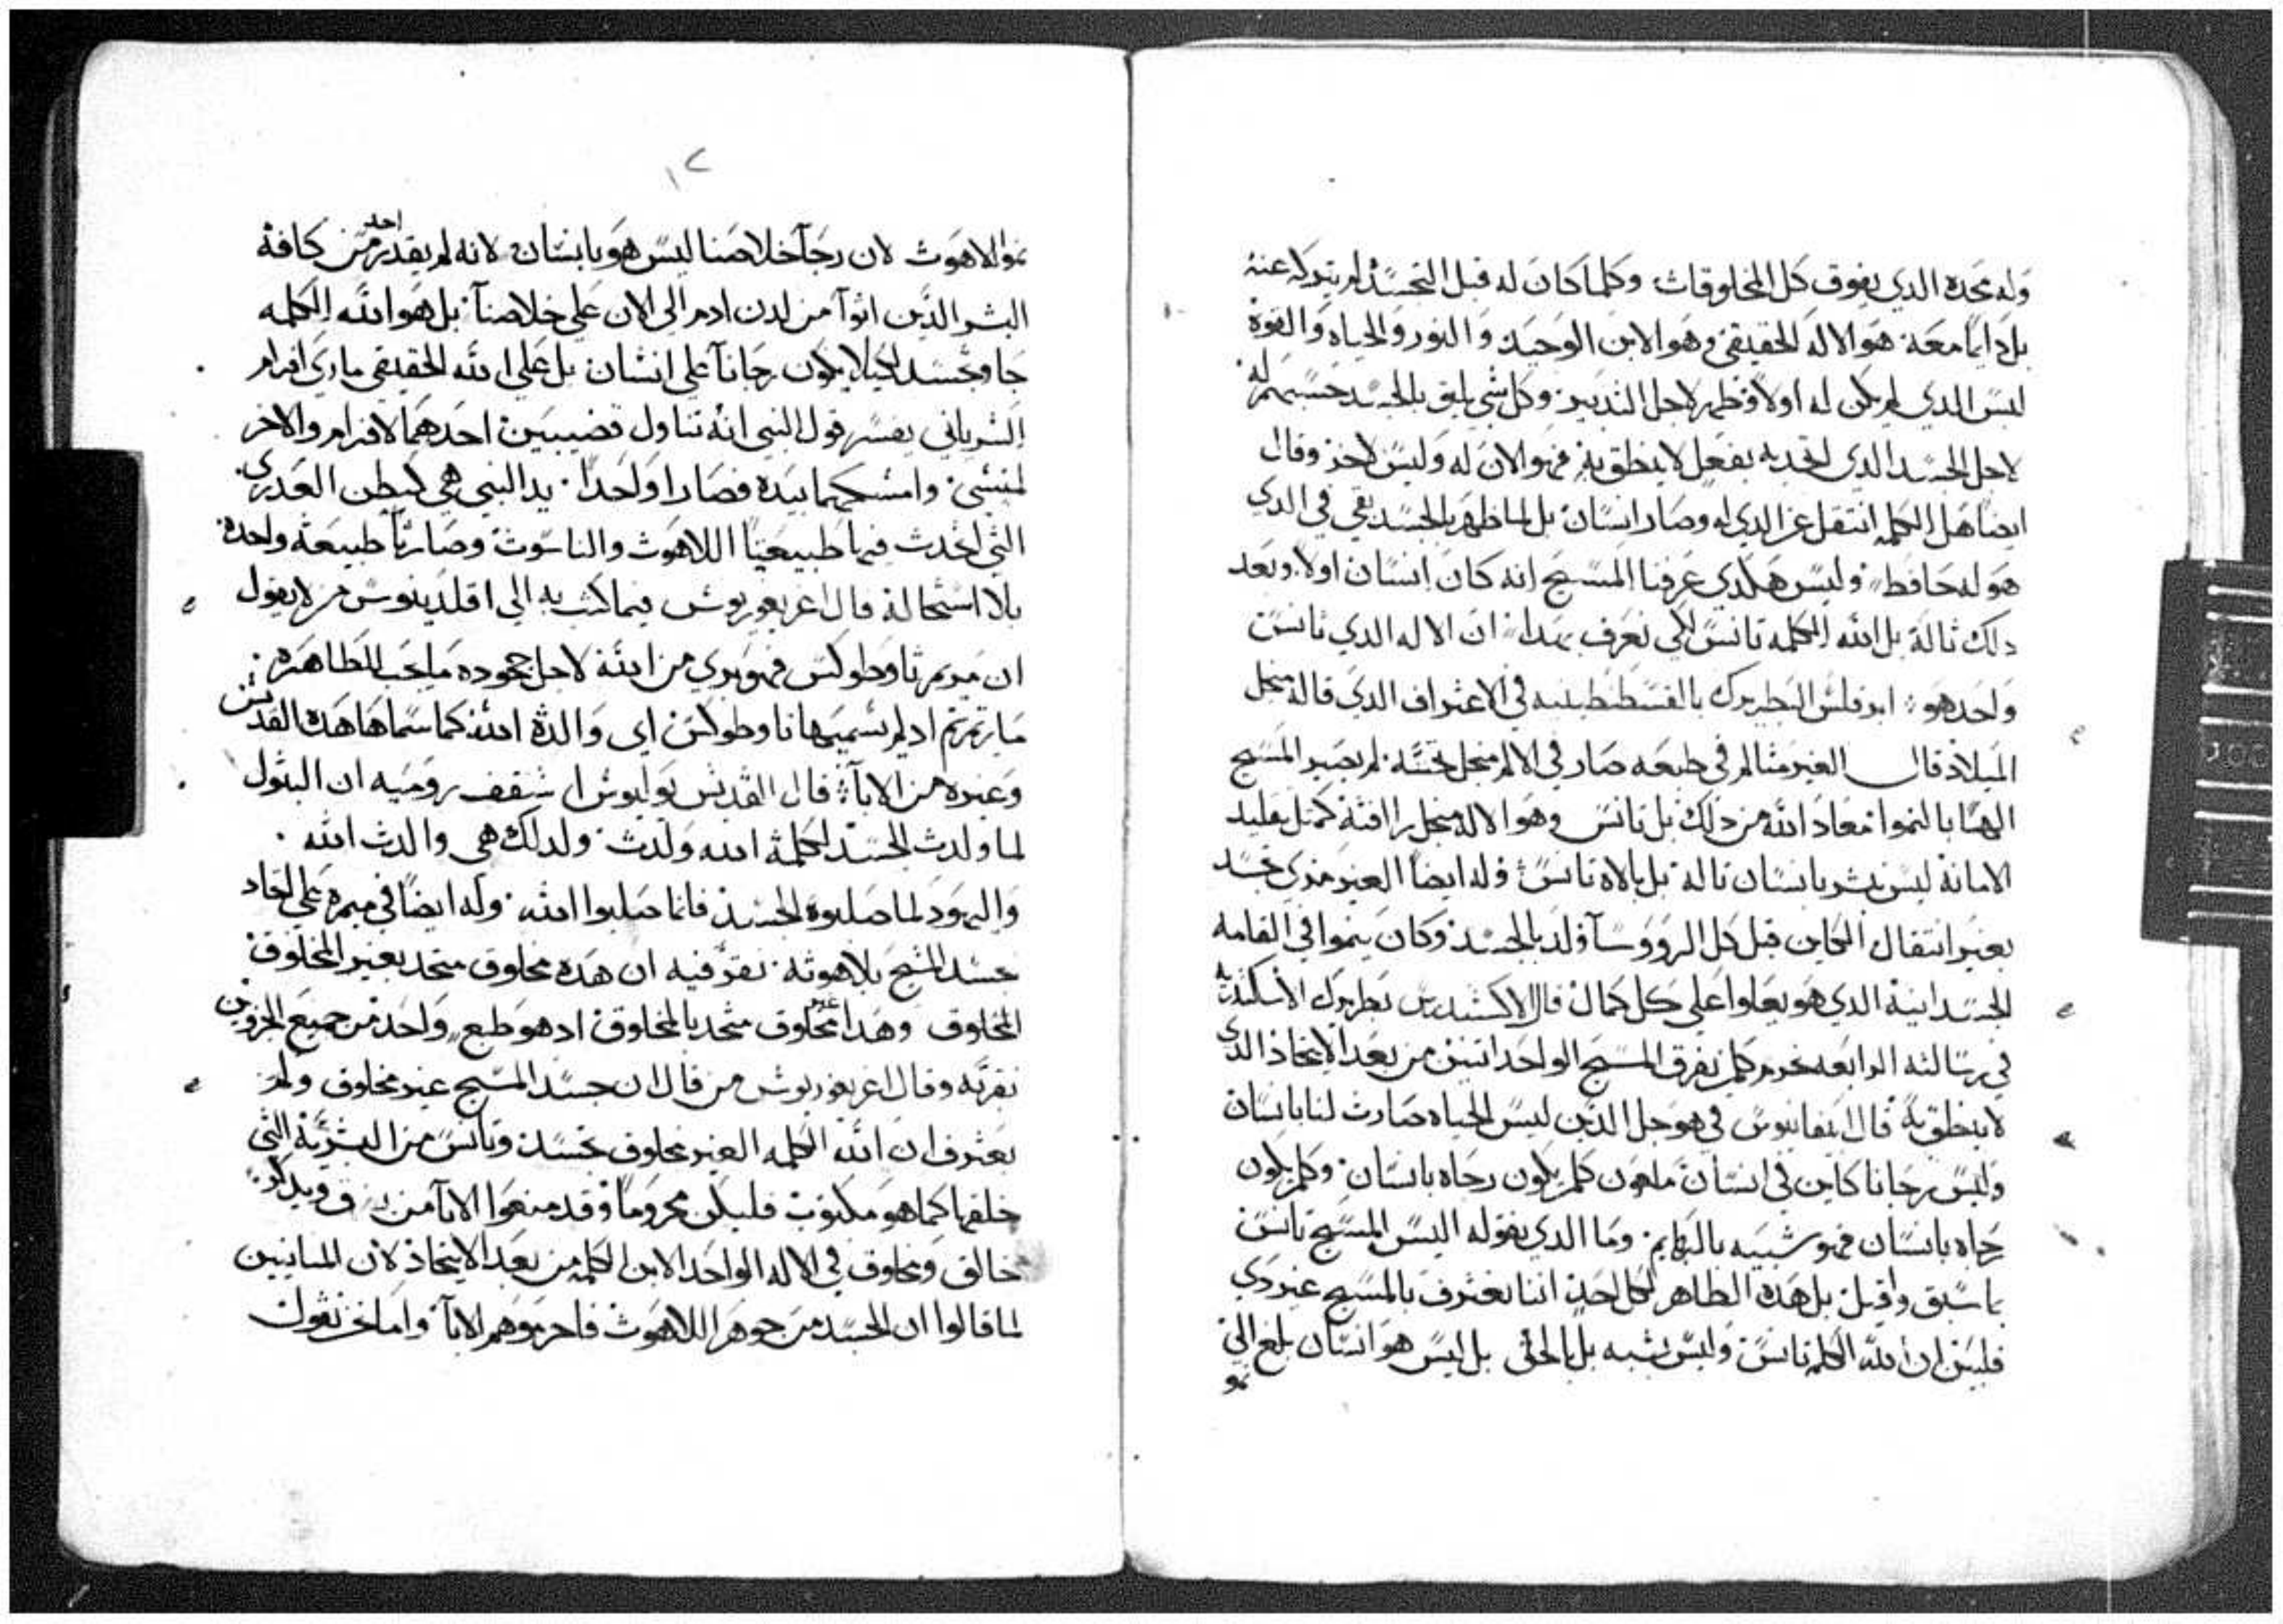 وله مجده الدي يفوق كل المخلوقات وكلما كان له قبل التجسد لم يتركه عنه
بل دايما معه هو الاله الحقيقي وهو الابن الوحيد والنور والحياه والقوة
ليس الدي لم يكن له اولا وظهر لاجل التدبير وكل شي يليق بالجسد
لاجل الجسد الدي اتحد به بفعل لا ينطق به فهو الان له وليس لاخر وقال
ايضا هل الكلمه انتقل عن الدي له وصار انسان بل لما ظهر بالجسد بقي في الدي
هو له حافظ وليس هكدي عرفنا المسيح انه كان انسان اولا وبعد
دلك تاله بل الله الكلمه تانس لكي نعرف بهدا ان الاله الدي تانس
واحد هو ابرقلس البطريرك بالقسطنطينيه في الاعتراف الدي قاله من اجل
الميلاد قال الغير متالم في طبعه صار في الالم من اجل تحننه لم يصير المسيح
الها بالنموا معاد الله من دلك بل تانس وهو الاله من اجل رافته كمثل تقليد
الامانة ليس نبشر بانسان تاله بل بالاه تانس وله ايضا الغير مري تجسد
بغير انتقال الكاين قبل كل الرووسا ولد بالجسد وكان ينموا في القامه
الجسدانية الدي هو يعلوا على كل كمال قال الاكسندرس بطريرك الاسكندريه
في رسالته الرابعه نحرم كلمن يفرق المسيح الواحد اتنين من بعد الاتحاد الدي
لا ينطق به قال ابيفانيوس في هوجل الدين ليس الحياه صارت لنا بانسان
وليس رجانا كاين في انسان ملعون كلمن يكون رجاه بانسان وكلمن يكون
رجاه بانسان فهو شبيه بالبهايم وما الدي يقوله اليس المسيح تانس
ما سبق وقيل بل هده الظاهر لكل احد اننا نعترف بالمسيح
فليس ان الله الكلمه تانس وليس بشبه بل بالحق بل ليس هو انسان بلغ الي
نمو
١٢
نمو اللاهوت لان رجا خلاصنا ليس هو بانسان لانه لم يقدر احد من كافة
البشر الدين اتوا من لدن ادم الي الان على خلاصنا بل هو الله الكلمه
جا وتجسد لكيلا يكون رجانا على انسان بل على الله الحقيقي ماري افرام
السرياني يفسر قول النبي انه تناول قضيبين احدهما لافرام والاخر
لمنسي وامسكهما بيده فصارا واحدا يد النبي هي كبطن العدري
التي اتحدت فيها طبيعتيا اللاهوت والناسوت وصارتا طبيعة واحده
بلا استحالة قال اغريغوريوس فيما كتب به الي اقلدينوس من لا يقول
ان مريم تاوطوكس فهو بري من الله لاجل جحوده ما يجب للطاهره
مارتمريم ادلم يسميها تاوطوكس اي والدة الله كما سماها هدا القديس
وغيره من الابا قال القديس يوليوس اسقف روميه ان البتول
لما ولدت الجسد لكلمة الله ولدت ولدلك هي والدت الله
واليهود لما صلبوه الجسد فانما صلبوا الله وله ايضا في ميمره على اتحاد
جسد المسيح بلاهوته نقر فيه ان هده مخلوق متحد بغير المخلوق
المخلوق وهدا غير مخلوق متحد بالمخلوق ادهو طبع واحد من جميع الجزوين
نقربه وقال اغريغوريوس من قال ان جسد المسيح غير مخلوق ولم
يعترف ان الله الكلمه الغير مخلوق تجسد وتانس من البشرية التي
خلقها كما هو مكتوب فليكن محروما وقد منعوا الابا من
خالق ومخلوق في الاله الواحد الابن الكلمه من بعد الاتحاد لان
لما قالوا ان الجسد من جوهر اللاهوت فاحرموهم الابا واما نحن نقول